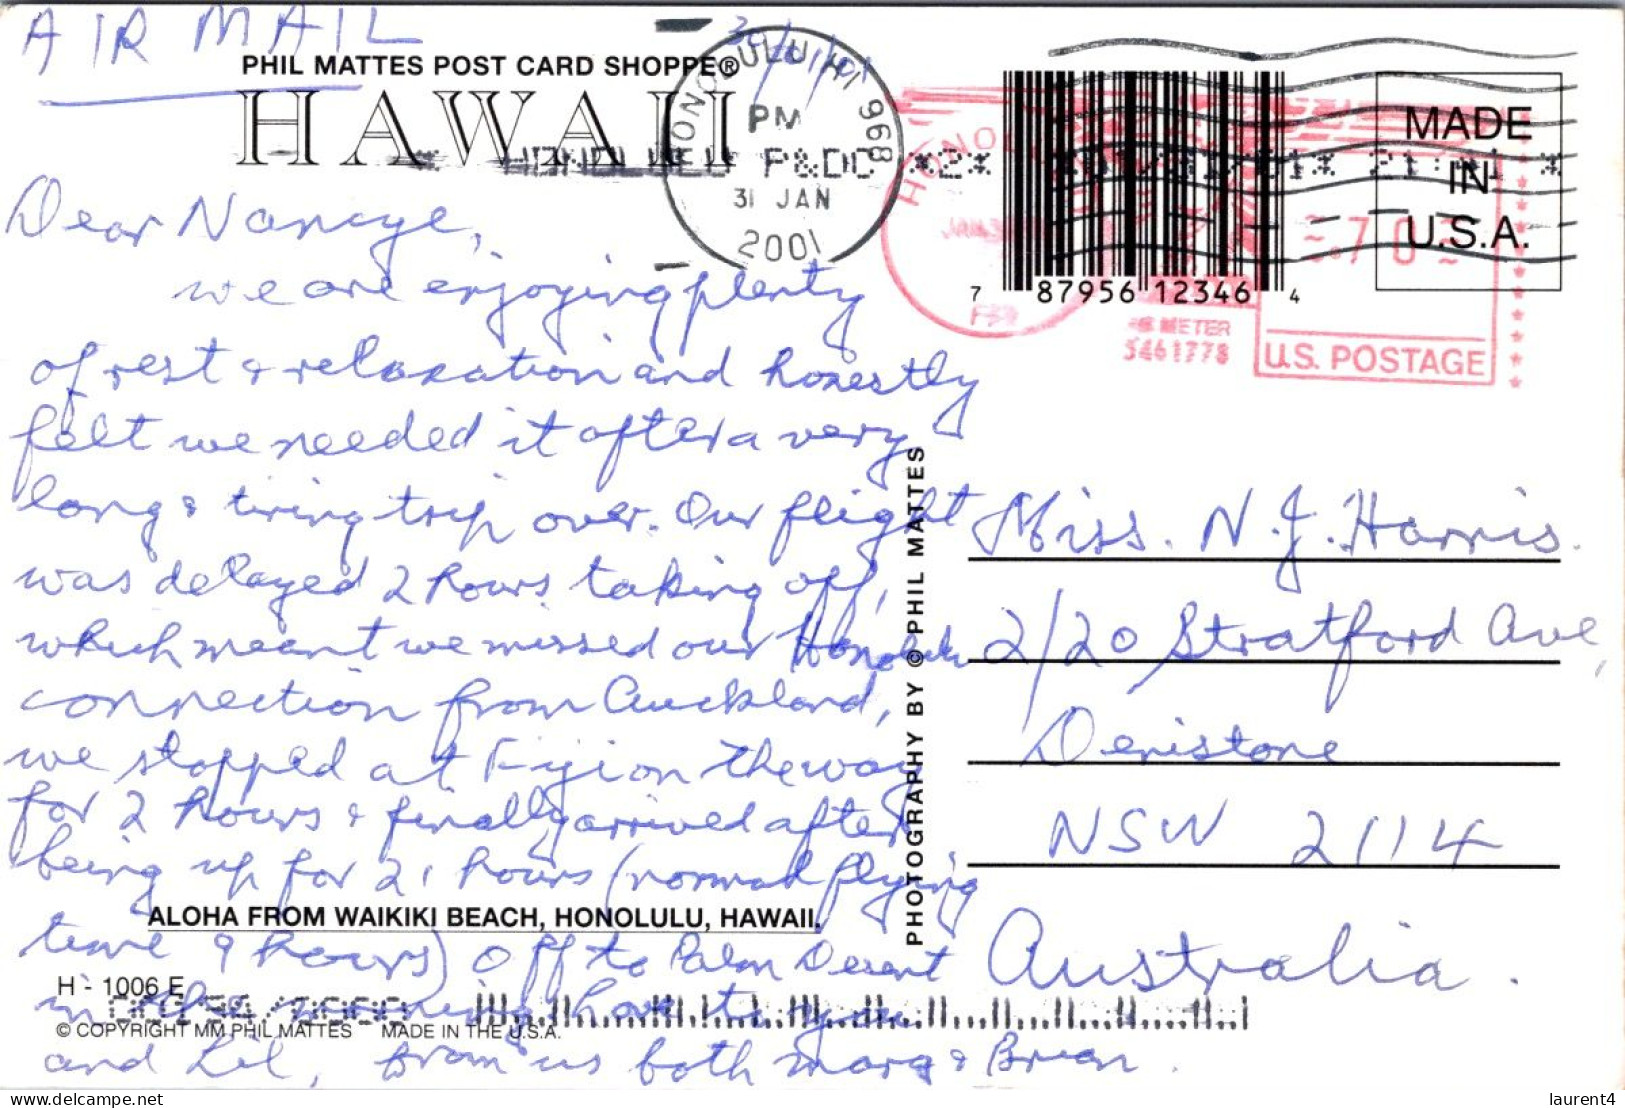 AIR MAIL
30/01/01
PHIL MATTES POST CARD SHOPPE®
HAWAII
HONOLULU HI 968
PM
31 JAN
2001
HONOLULU P&DC *2*
Dear Nancye,
we are enjoying plenty
of rest & relaxation and honestly
felt we needed it after a very
long & tiring trip over. Our flight
was delayed 2 hours taking off,
which meant we missed our Honolulu
connection from Auckland,
we stopped at Fiji on the way
for 2 hours & finally arrived after
being up for 21 hours (normal flying
time 9 hours) Off to Palm Desert
in the morning love to you
and Lil, from us both Marg & Brian.
ALOHA FROM WAIKIKI BEACH, HONOLULU, HAWAII.
H - 1006 E
© COPYRIGHT MM PHIL MATTES MADE IN THE U.S.A.
PHOTOGRAPHY BY © PHIL MATTES
7 87956 12346 4
MADE
IN
U.S.A.
METER
5461778
U.S. POSTAGE
Miss. N. J. Harris.
2/20 Stratford Ave,
Denistone
NSW 2114
Australia.
https://www.delcampe.net
laurent4